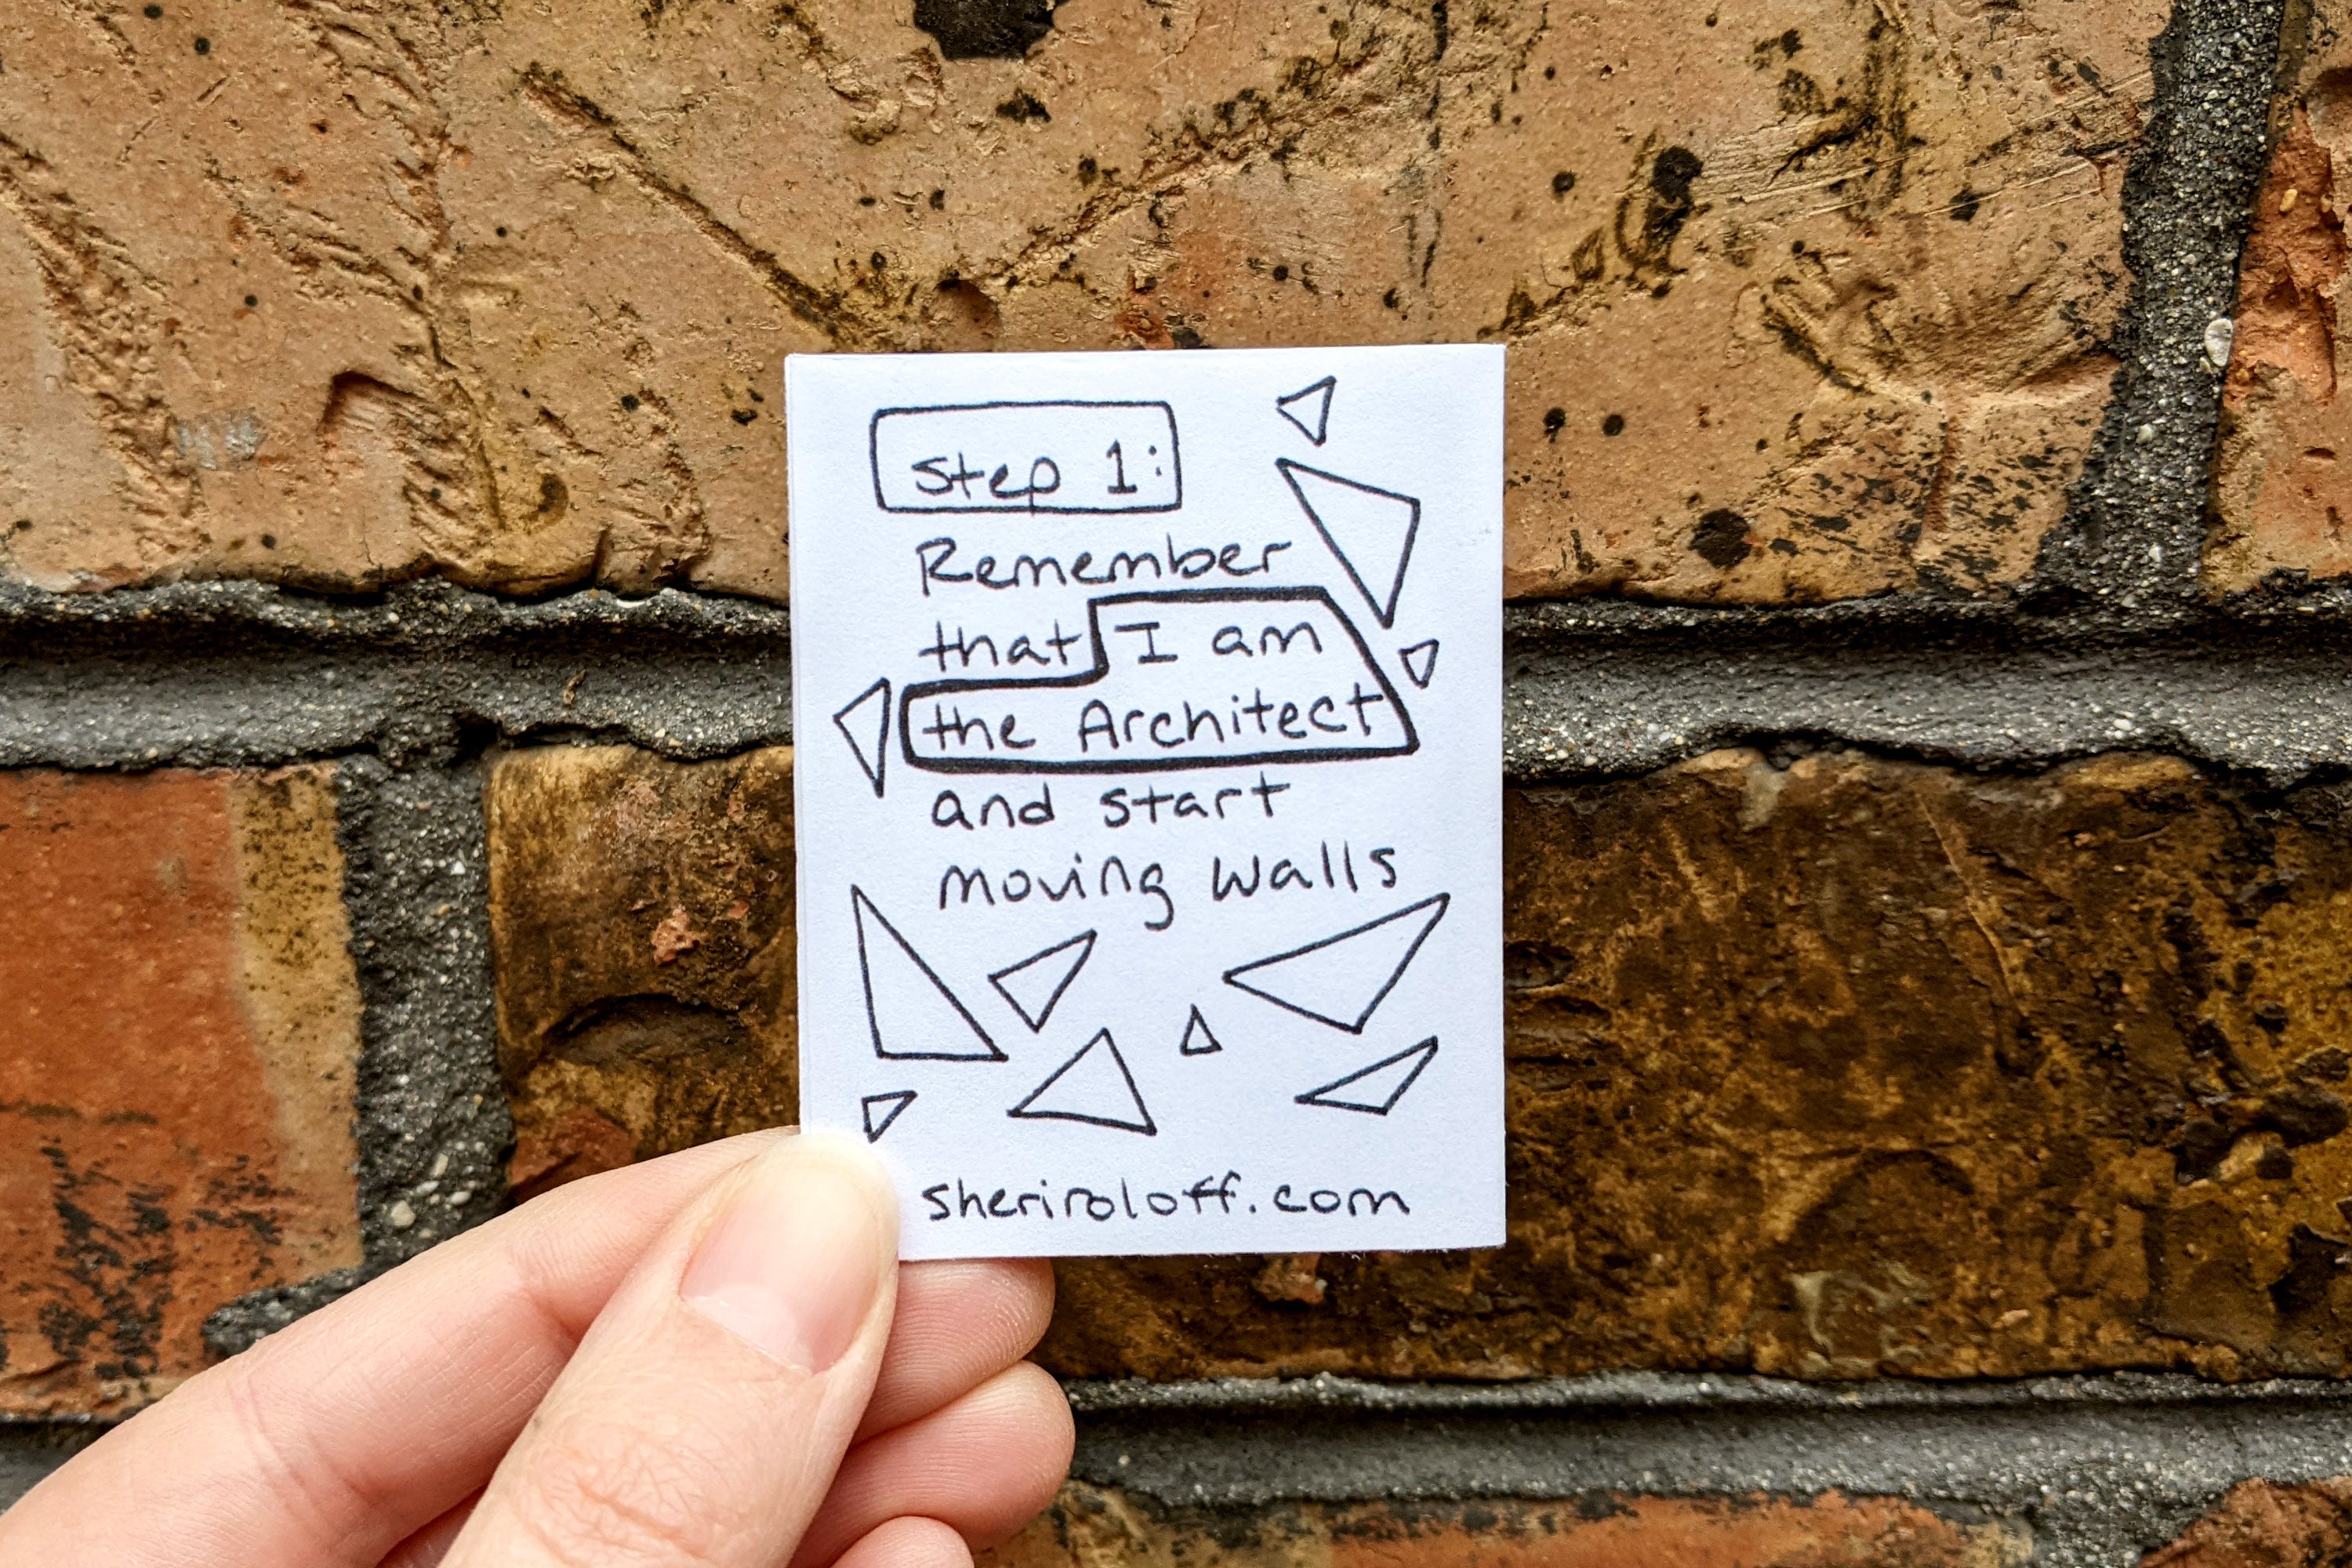 Step 1:
Remember
that I am
the Architect
and start
moving walls
sheriroloff.com